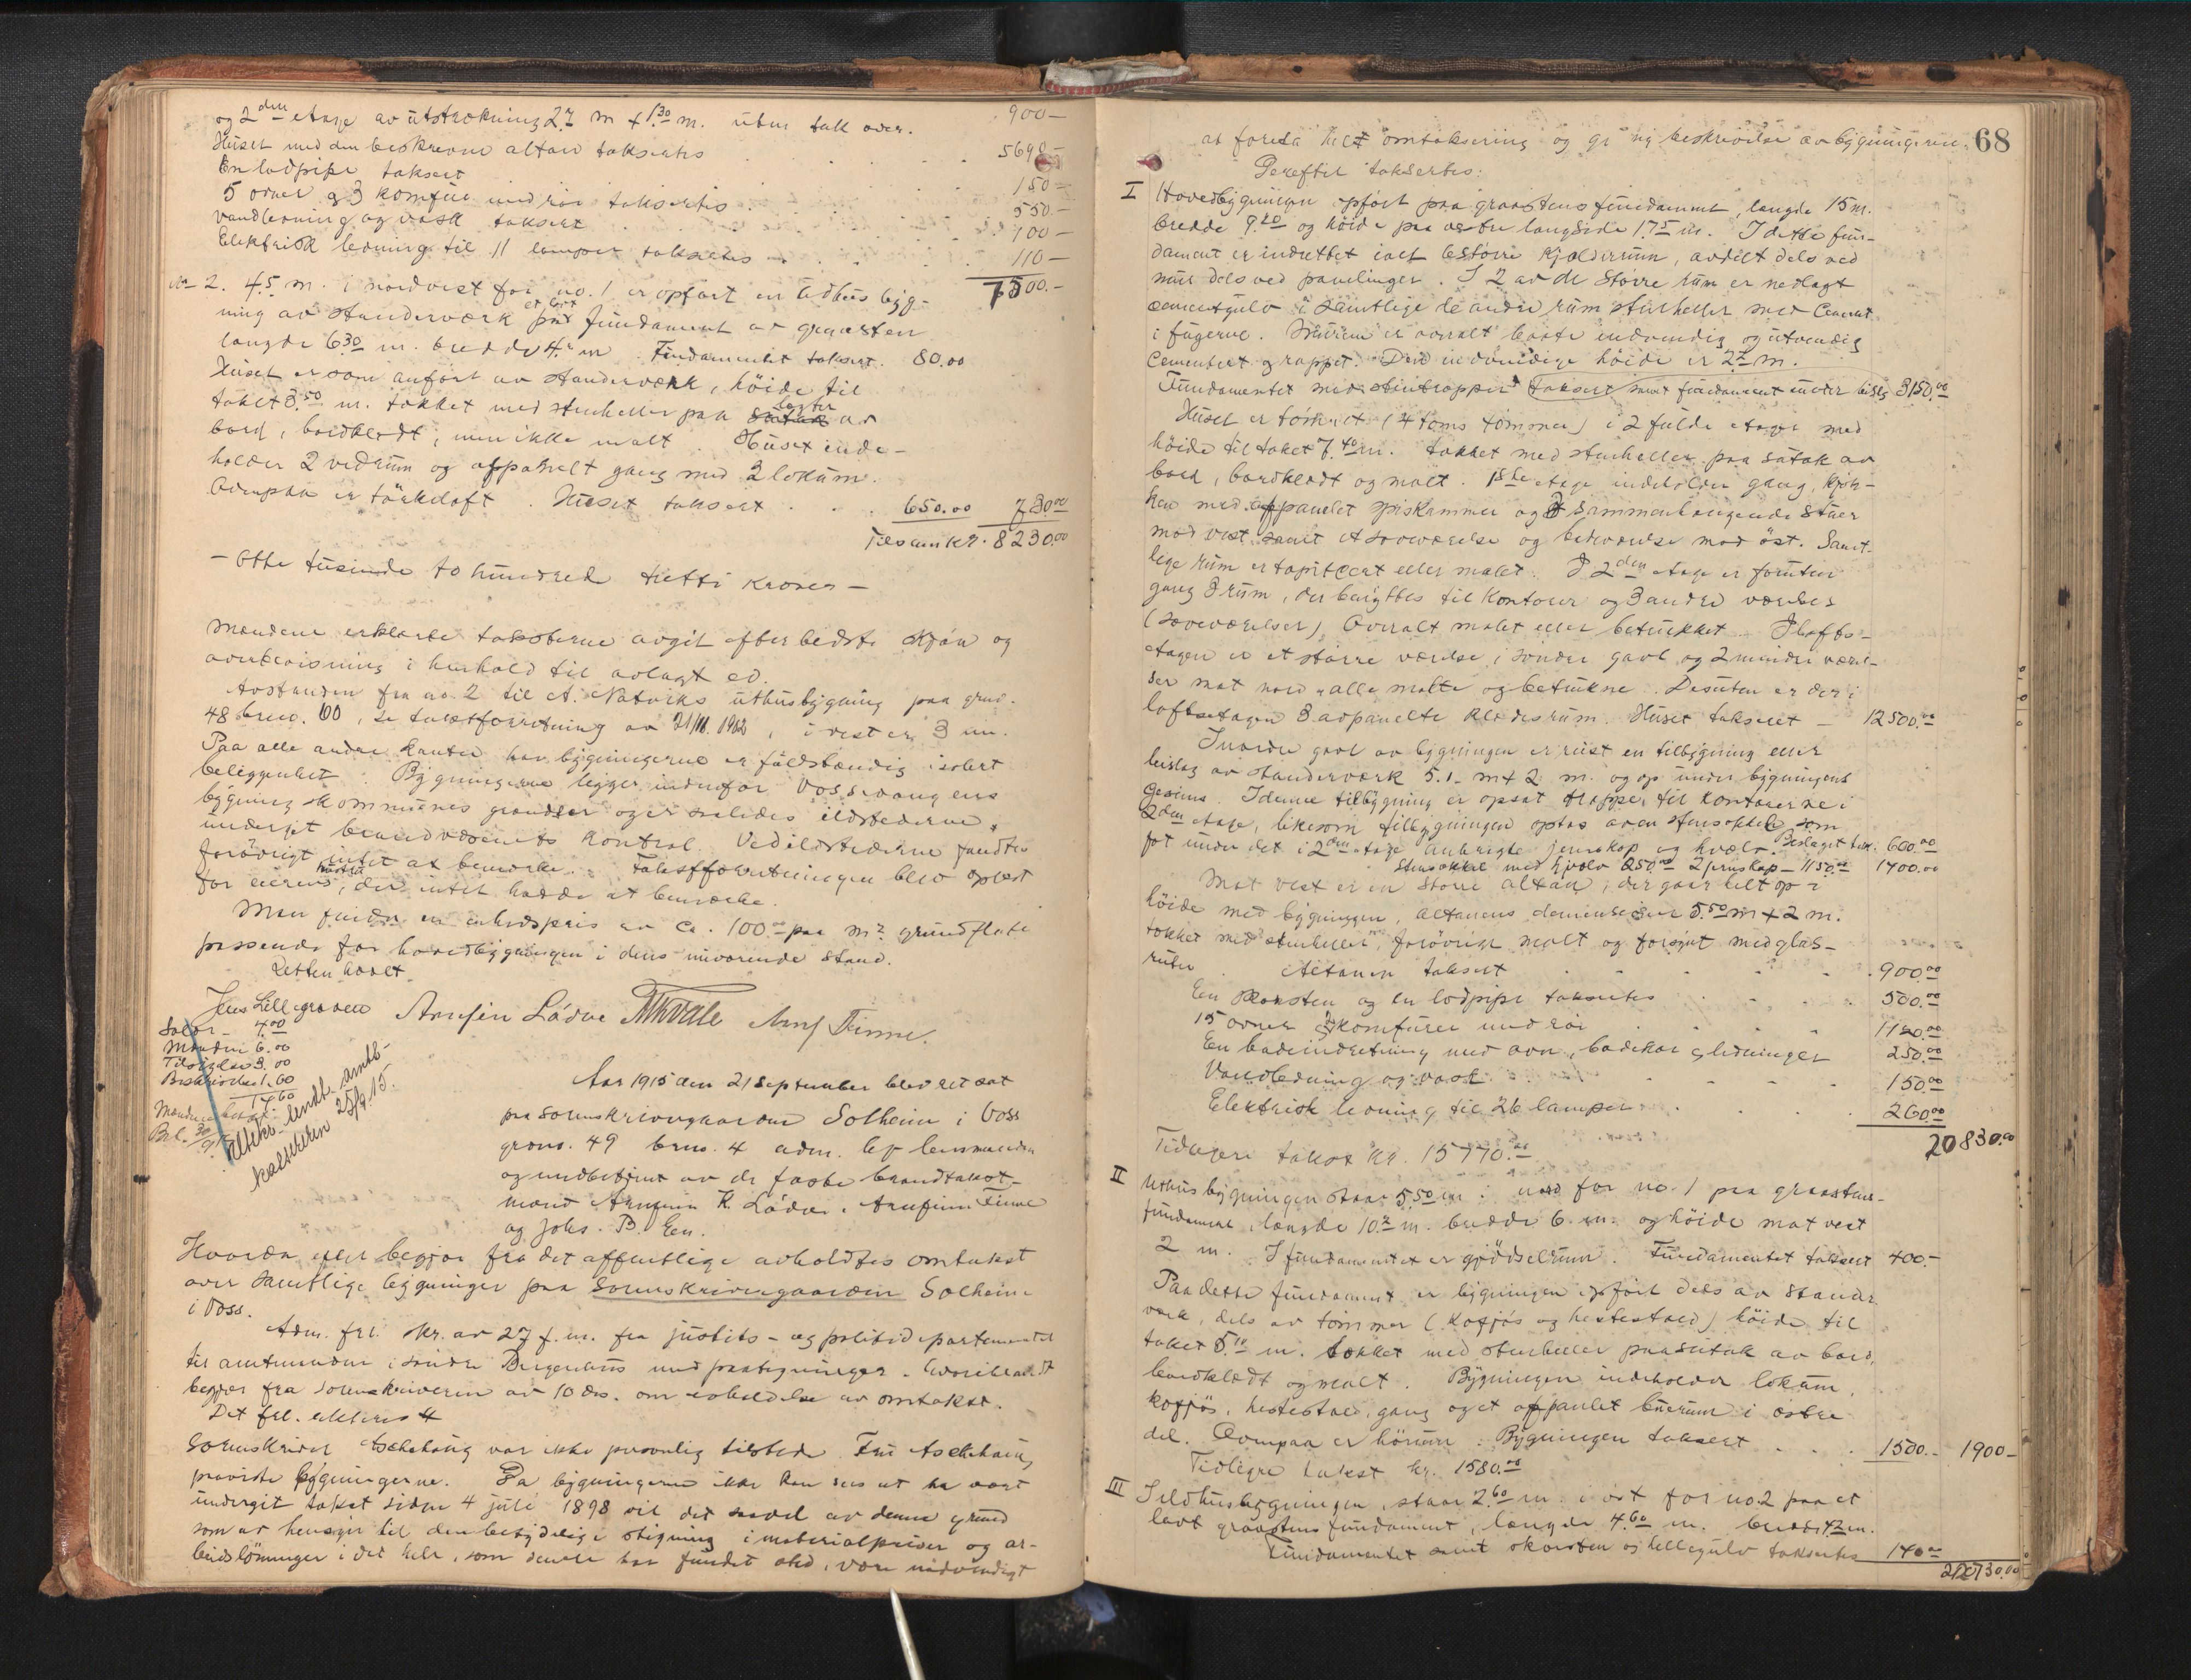 og 2den etage av utstrækning 2.7 m + 1.30 m. uten tak over. 900 —
Huset med den beskrevne altan taksertes . . . 5690 —
En lodpipe taksert . . . 150 —
5 ovner og 3 komfur med rør taksertes . . . 550.—
Vandledning og vask taksert . . . 100 —
Elektrisk ledning til 11 lamper taksertes . . . 110 —
7500.—
No 2. 4.5 m. i nordvest for no. 1 er opført en vedhusbyg-
ning av standerværk paa et lavt fundament av graasten
længde 6.30 m. bredde 4. m. Fundamentet taksert. 80.00
Huset er som anført av standerværk, höide til
taket 3.50 m. tækket med stenheller paa lægter av
bord, bordklædt, men ikke malt. Huset inde-
holder 2 vedrum og afpanelt gang med 2 lokum.
Ovenpaa er tørkeloft. Huset taksert . . . 650.00 730.00
Tilsammen kr. 8230.00
— Otte tusinde to hundrede tretti kroner —
Mændene erklærte taksterne avgit efter bedste skjøn og
overbevisning i henhold til avlagt ed.
Avstanden fra no. 2 til A. Natviks uthusbygning paa grno.
48 brno. 60, se takstforretning av 21/11. 1912, i vest er 3 m.
Paa alle andre kanter har bygningerne en fuldstændig isolert
beliggenhet. Bygningerne ligger indenfor Vossevangens
bygningskommunes grændser og er saaledes ildstederne
undergit brandvæsenets kontrol. Ved ildstederne fandtes
forøvrigt intet at bemerke. Takstforretningen blev oplæst
for eierens hustru, der intet hadde at bemerke.
Man finder en enhedspris av ca. 100.— paa m2 grundflate
passende for hovedbygningen i dens nuværende stand.
Retten hævet.
Jens Lillegraven Arnfin Lødve Arnf Finne.
Salær — 4.00
Mændene 6.00
Tilsigelse 3.00
Beskrivelse 1.60
14.60
Aar 1915 den 21 September blev ret sat
paa sorenskrivergaarden Solheim i Voss
grno. 49 brno. 4 adm. lf lensmanden
og medbetjent av de faste brandtakst-
mænd Arnfinn K. Lødve, Arnfinn Finne
og Johs. B. Een.
Hvorda efter begjær fra det offentlige avholdtes omtakst
over samtlige bygninger paa Sorenskrivergaarden Solheim
i Voss.
Adm. frl. skr. av 27 f. m. fra justits- og politidepartementet
til amtmanden i søndre Bergenhus med paategninger, hvoriblandt
begjær fra sorenskriveren av 10 ds. om avholdelse av omtakst.
Det frl. akteres 4
Sorenskriver Aschehoug var ikke personlig tilstede. Fru Aschehoug
paaviste bygningerne. Da bygningerne ikke kan sees at ha vært
undergit takst siden 4 juli 1898 vil det saavel av denne grund
som av hensyn til den betydelige stigning i materialpriser og ar-
beidslønninger i det hele, som senere har fundet sted, være nødvendigt
68
at foreta helt omtaksering og gi ny beskrivelse av bygningerne.
Derefter taksertes:
I Hovedbygningen opført paa graastensfundament, længde 15 m.
bredde 9.20 og høide paa østre langside 1.75 m. I dette fun-
dament er indrettet ialt 6 større kjælderrum, avdelt dels ved
mur dels ved panelinger. I 2 av de større rum er nedlagt
cementgulv i samtlige de andre rum stenheller med Cement
i fugerne. Murene er overalt baate indvendig og utvendig
Cementert og rappet. Den indvendige høide er 2.2 m.
Fundamentet med stentrapper taksert samt fundament under bislag 3150.00
Huset er tømret (4 toms tømmer) i 2 fulde etager med
høide til taket 7.40 m. tækket med stenheller paa sutak av
bord, bordklædt og malt. 1ste etage indeholder gang, kjøk-
ken med afpanelet spiskammer og 3 sammenhængende stuer
mot vest samt et soveværelse og badeværelse mod øst. Samt-
lige rum er tapetsert eller malet. I 2den etage er foruten
gang 3 rum, der benyttes til kontorer og 3 andre værelser
(soveværelser) overalt malet eller betrukket. I lofts-
etagen er et større værelse i søndre gavl og 2 mindre værel-
ser mot nord, alle malte og betrukne. Desuten er der i
loftsetagen 3 avpanelte klædesrum. Huset taksert — 12500.00
I nordre gavl av bygningen er reist en tilbygning eller
bislag av standerværk 5.1 m + 2 m. og op under bygningens
gesims. I denne tilbygning er opsat trapper til kontorerne i
2den etage, likesom tilbygningen optas av en stensokkel som
fot under det i 2den etage anbragte jernskap og hvælv. Beslaget tak. 600.00
Stensokkel med hvælv 250.00 2 jernskap — 1150.00 1400.00
Mot vest er en større altan, der gaar helt op i
høide med bygningen, altanens dimensioner 5.50 m + 2 m.
tækket med stenheller, forøvrigt malt og forsynt med glas-
ruter. Altanen taksert . . . 900.00
En skorsten og en lodpipe taksertes . . . 500.00
15 ovner 2 komfurer med rør . . . 1120.00
En badeindretning med ovn, badekar og ledninger 250.00
Vandledning og vask . . . 150.00
Elektrisk ledning til 26 lamper . . . 260.00
20830.00
Tidligere takst kr. 15770.00
II Uthusbygningen staar 5.50 m i nord for no. 1 paa graastens-
fundament, længde 10.2 m. bredde 6. m. og høide mot vest
2 m. I fundamentet er gjødselrum. Fundamentet taksert 400.—
Paa dette fundament er bygningen opført dels av stander-
værk, dels av tømmer (kofjøs og hestestald) høide til
taket 5.10 m. tækket med stenheller paa sutak av bord,
bordklædt og malt. Bygningen indeholder lokum
kofjøs, hestestald, gang og et afpanlet buerum i østre
del. Ovenpaa er hørum. Bygningen taksert . . . 1500.— 1900 —
Tidligere takst kr. 1580.00
III Ildhusbygningen, staar 2.60 m i øst for no. 2 paa et
lavt graastensfundament, længde 4.60 m. bredde 4.2 m.
Fundamentet samt skorsten og hellegulv taksertes 140.00